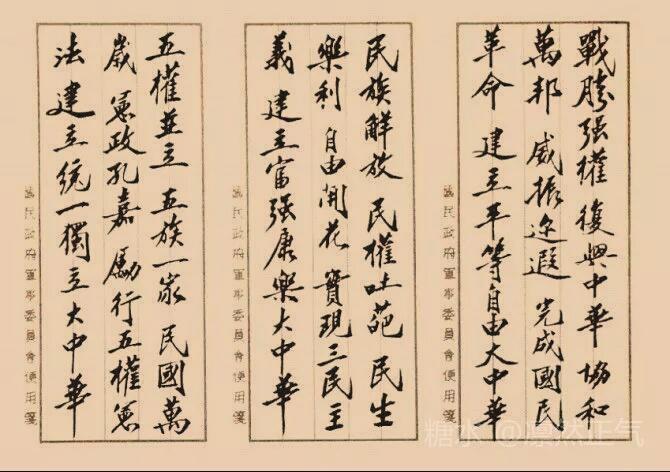 戰勝强權 復興中華 協和
萬邦 威振迩遐 完成國民
革命 建立平等自由大中華
國民政府軍事委員會便用箋
民族解放 民權吐葩 民生
樂利 自由開花 實現三民主
義 建立富强康樂大中華
國民政府軍事委員會便用箋
五權並立 五族一家 民國萬
歲 憲政孔嘉 勵行五權憲
法 建立統一獨立大中華
國民政府軍事委員會便用箋
糖水 @凛然正气